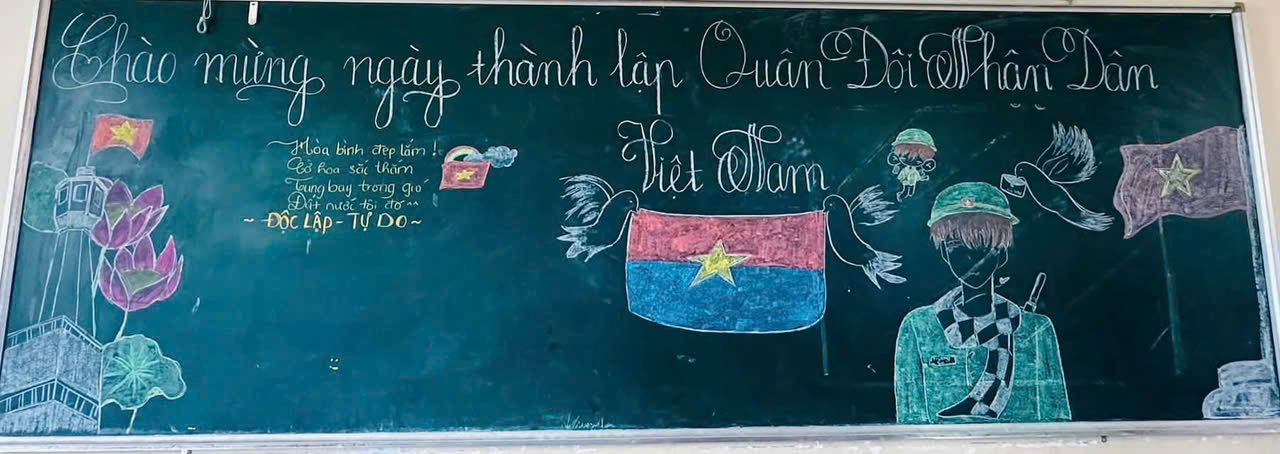 Chào mừng ngày thành lập Quân Đội Nhân Dân
Việt Nam
Hòa bình đẹp lắm !
Cờ hoa sắc thắm
Tung bay trong gió
Đất nước tôi đó ^^
~ ĐỘC LẬP - TỰ DO ~